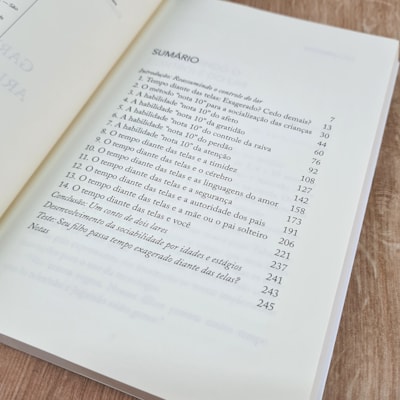 SUMÁRIO
Introdução: Reassumindo o controle do lar 7
1. Tempo diante das telas: Exagerado? Cedo demais? 13
2. O método "nota 10" para a socialização das crianças 30
3. A habilidade "nota 10" do afeto 44
4. A habilidade "nota 10" da gratidão 60
5. A habilidade "nota 10" do controle da raiva 76
6. A habilidade "nota 10" do perdão 92
7. A habilidade "nota 10" da atenção 108
8. O tempo diante das telas e a timidez 127
9. O tempo diante das telas e o cérebro 142
10. O tempo diante das telas e as linguagens do amor 158
11. O tempo diante das telas e a segurança 173
12. O tempo diante das telas e a autoridade dos pais 191
13. O tempo diante das telas e a mãe ou o pai solteiro 206
14. O tempo diante das telas e você 221
Conclusão: Um conto de dois lares 237
Desenvolvimento da sociabilidade por idades e estágios 241
Teste: Seu filho passa tempo exagerado diante das telas? 243
Notas 245